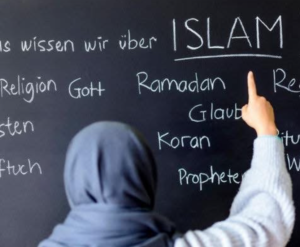 wissen wir über ISLAM
Religion Gott Ramadan
Glaub
Koran
Prophete